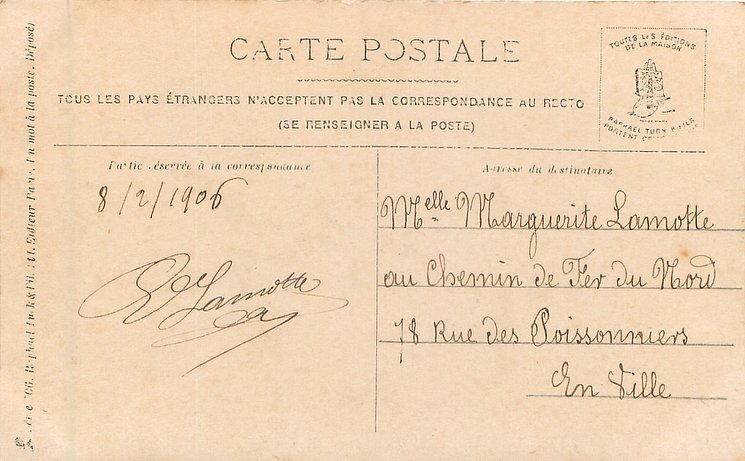 CARTE POSTALE
TOUS LES PAYS ÉTRANGERS N'ACCEPTENT PAS LA CORRESPONDANCE AU RECTO
(SE RENSEIGNER A LA POSTE)
TOUTES LES ÉDITIONS
DE LA MAISON
RAPHAEL TUCK & FILS
PORTENT
Partie réservée à la correspondance
8/2/1906
Lamotte
Adresse du destinataire
Melle Marguerite Lamotte
au Chemin de Fer du Nord
78 Rue des Poissonniers
En Ville
Raphael Tuck & Fils Editeur Paris. Un mot à la poste. Déposé